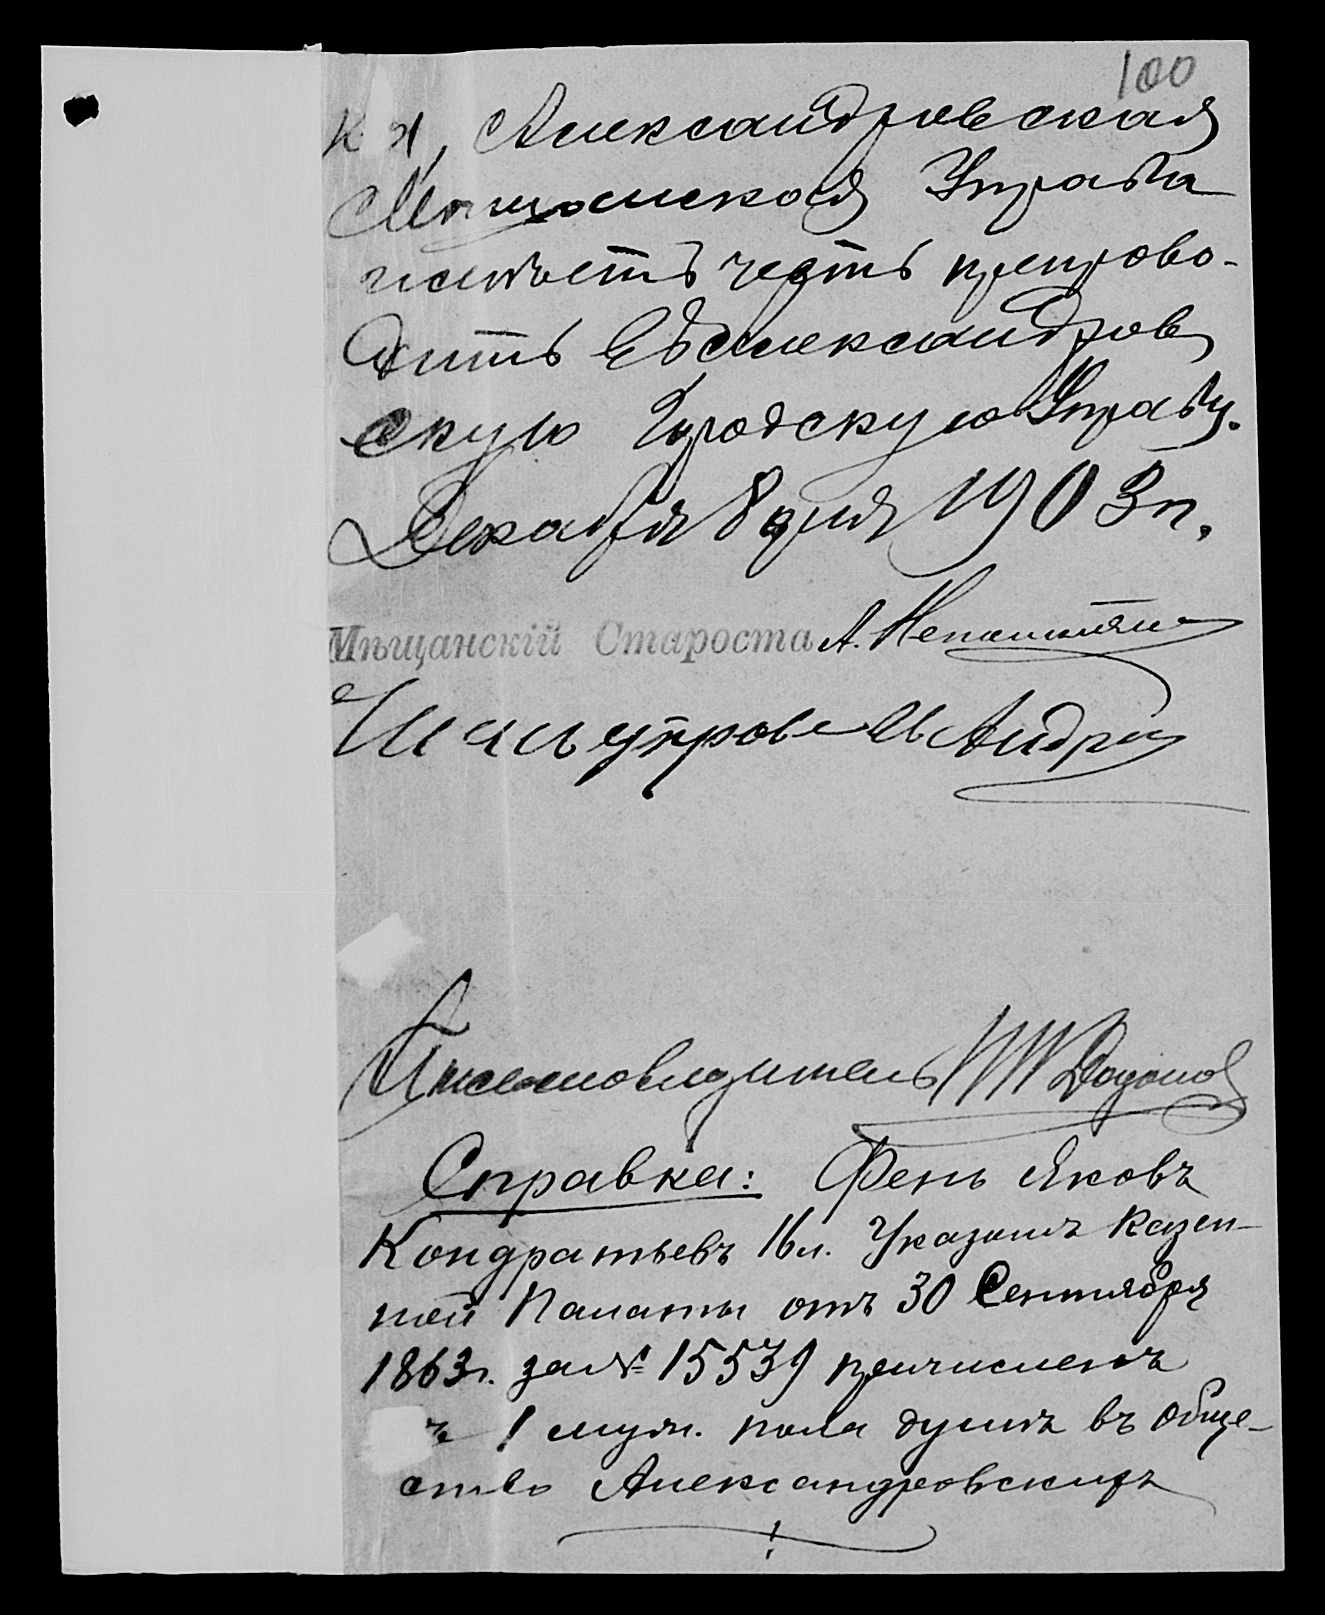 100
Александровская
Мѣщанская Управа
имѣетъ честь препрово-
дить въ Александров
скую Городскую Управу.
Декабря 8 дня 1903 г.
Мѣщанскій Староста А.
Письмоводитель
Справка: Фень Яковъ
Кондратьевъ 16 л. Указомъ Казен-
ной Палаты отъ 30 Сентября
1863 г. за № 15539 причисленъ
1 муж. пола душѣ въ обще-
ство Александровскихъ